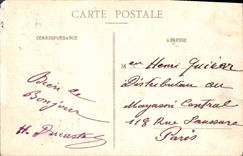 CARTE POSTALE
CORRESPONDANCE
ADRESSE
Bien le
Bonjour
H.
M Henri
Distributeur au
Magasin Central
118 Rue Saussure
Paris